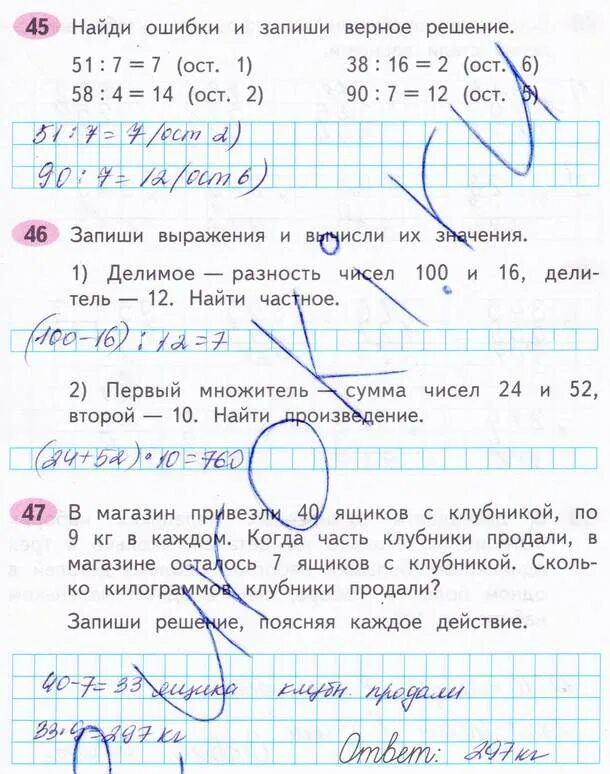 45 Найди ошибки и запиши верное решение.
51 : 7 = 7 (ост. 1) 38 : 16 = 2 (ост. 6)
58 : 4 = 14 (ост. 2) 90 : 7 = 12 (ост. 5)
51 : 7 = 7 (ост 2)
90 : 7 = 12 (ост 6)
46 Запиши выражения и вычисли их значения.
1) Делимое — разность чисел 100 и 16, дели-
тель — 12. Найти частное.
(100-16) : 12 = 7
2) Первый множитель — сумма чисел 24 и 52,
второй — 10. Найти произведение.
(24+52) · 10 = 760
47 В магазин привезли 40 ящиков с клубникой, по
9 кг в каждом. Когда часть клубники продали, в
магазине осталось 7 ящиков с клубникой. Сколь-
ко килограммов клубники продали?
Запиши решение, поясняя каждое действие.
40-7 = 33 ящика клубн. продали
33·9 = 297 кг
Ответ: 297 кг